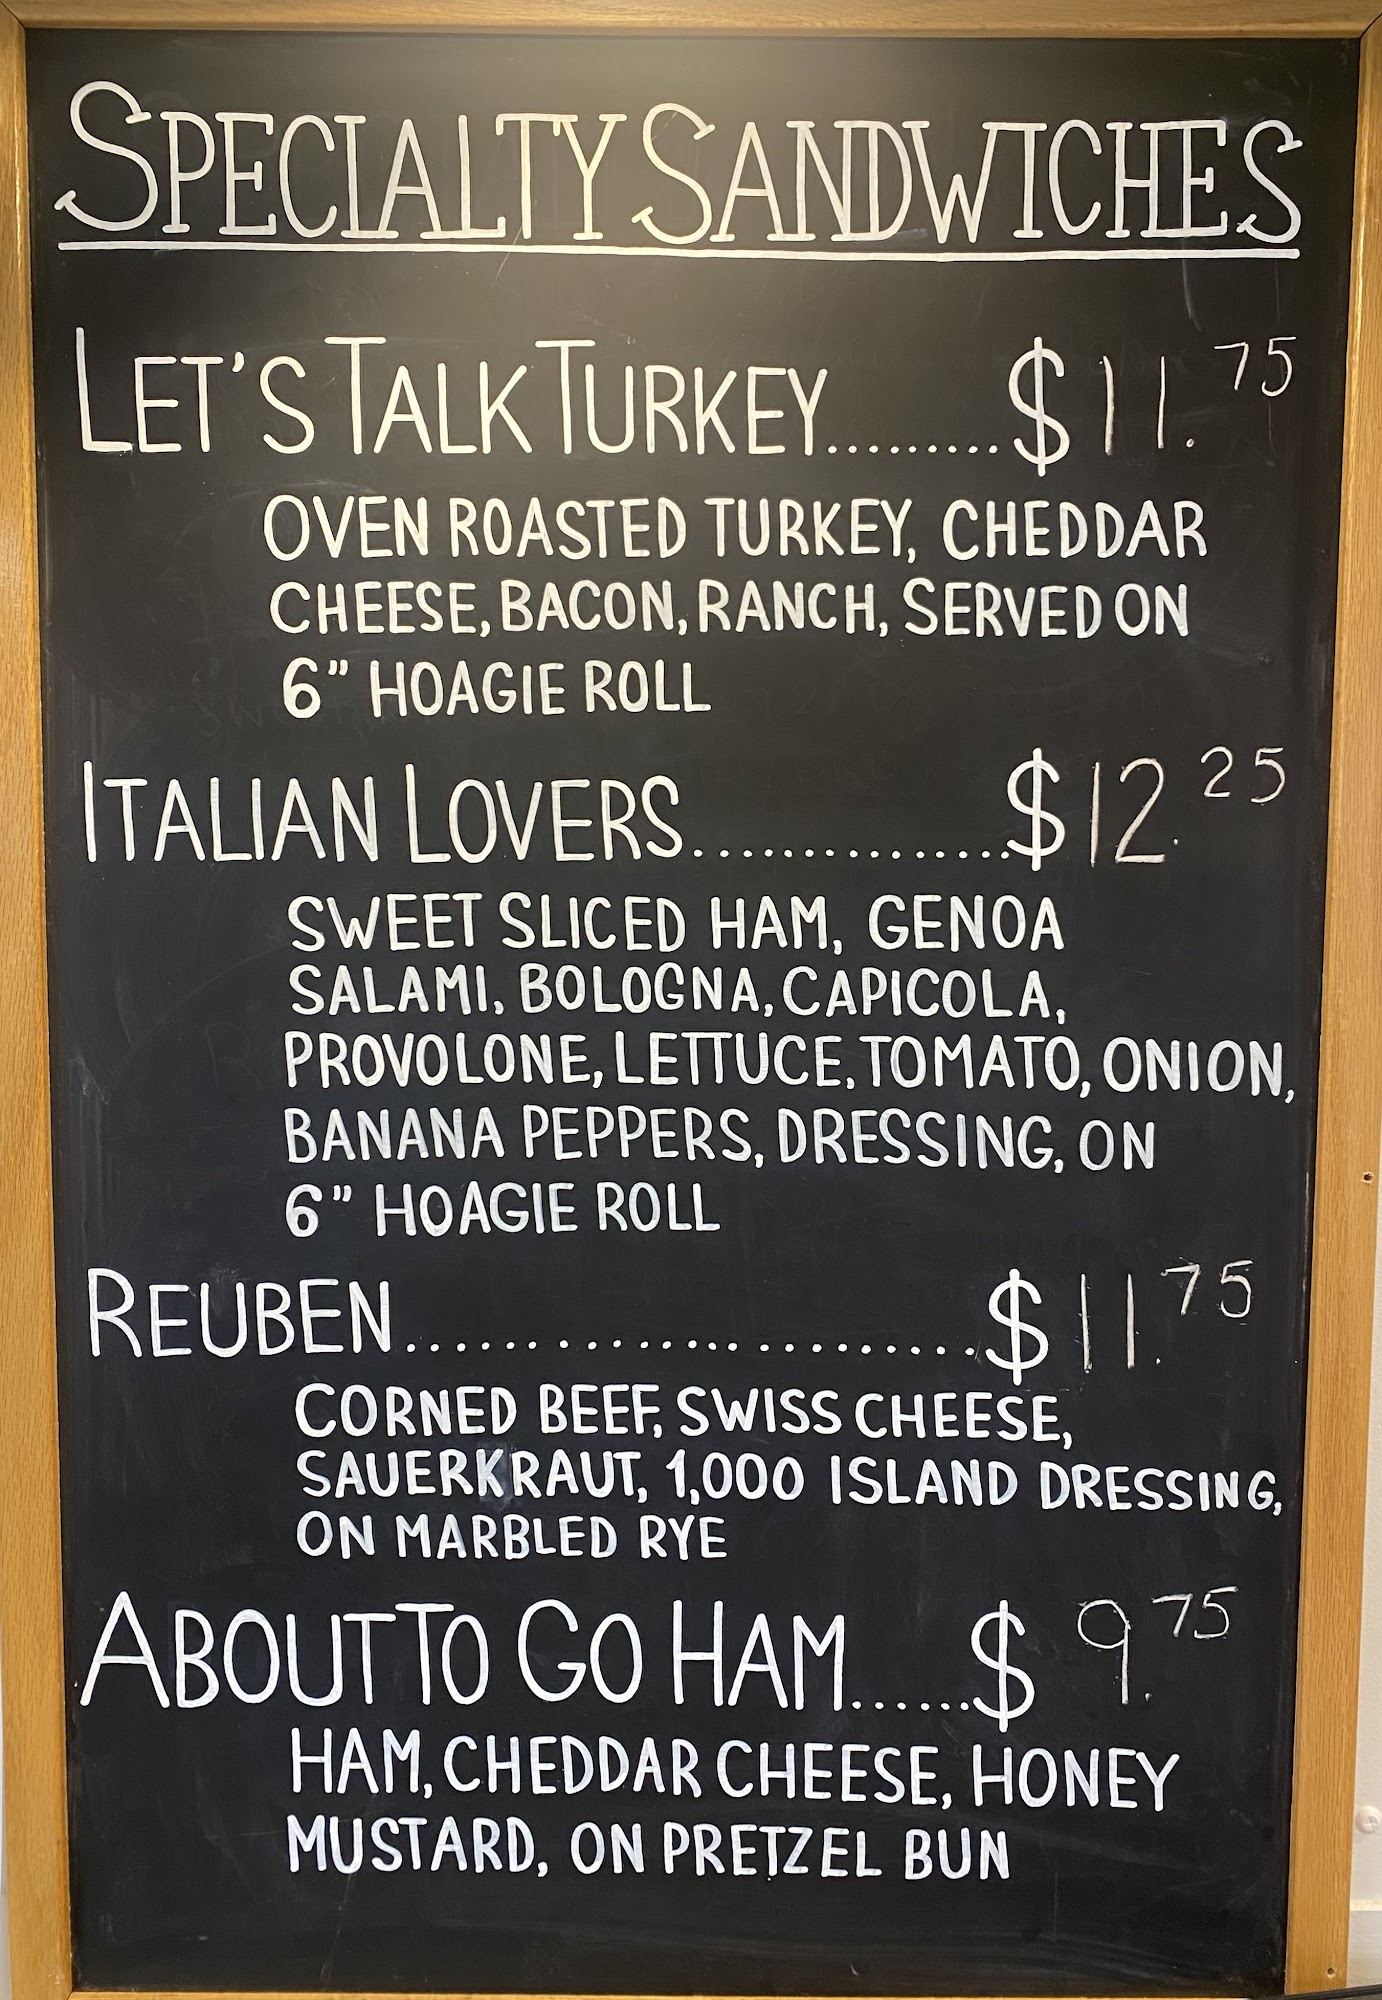 SPECIALTY SANDWICHES
LET'S TALK TURKEY.........$11.75
OVEN ROASTED TURKEY, CHEDDAR
CHEESE, BACON, RANCH, SERVED ON
6" HOAGIE ROLL
ITALIAN LOVERS...............$12.25
SWEET SLICED HAM, GENOA
SALAMI, BOLOGNA, CAPICOLA,
PROVOLONE, LETTUCE, TOMATO, ONION,
BANANA PEPPERS, DRESSING, ON
6" HOAGIE ROLL
REUBEN..........................$11.75
CORNED BEEF, SWISS CHEESE,
SAUERKRAUT, 1,000 ISLAND DRESSING,
ON MARBLED RYE
ABOUT TO GO HAM......$9.75
HAM, CHEDDAR CHEESE, HONEY
MUSTARD, ON PRETZEL BUN